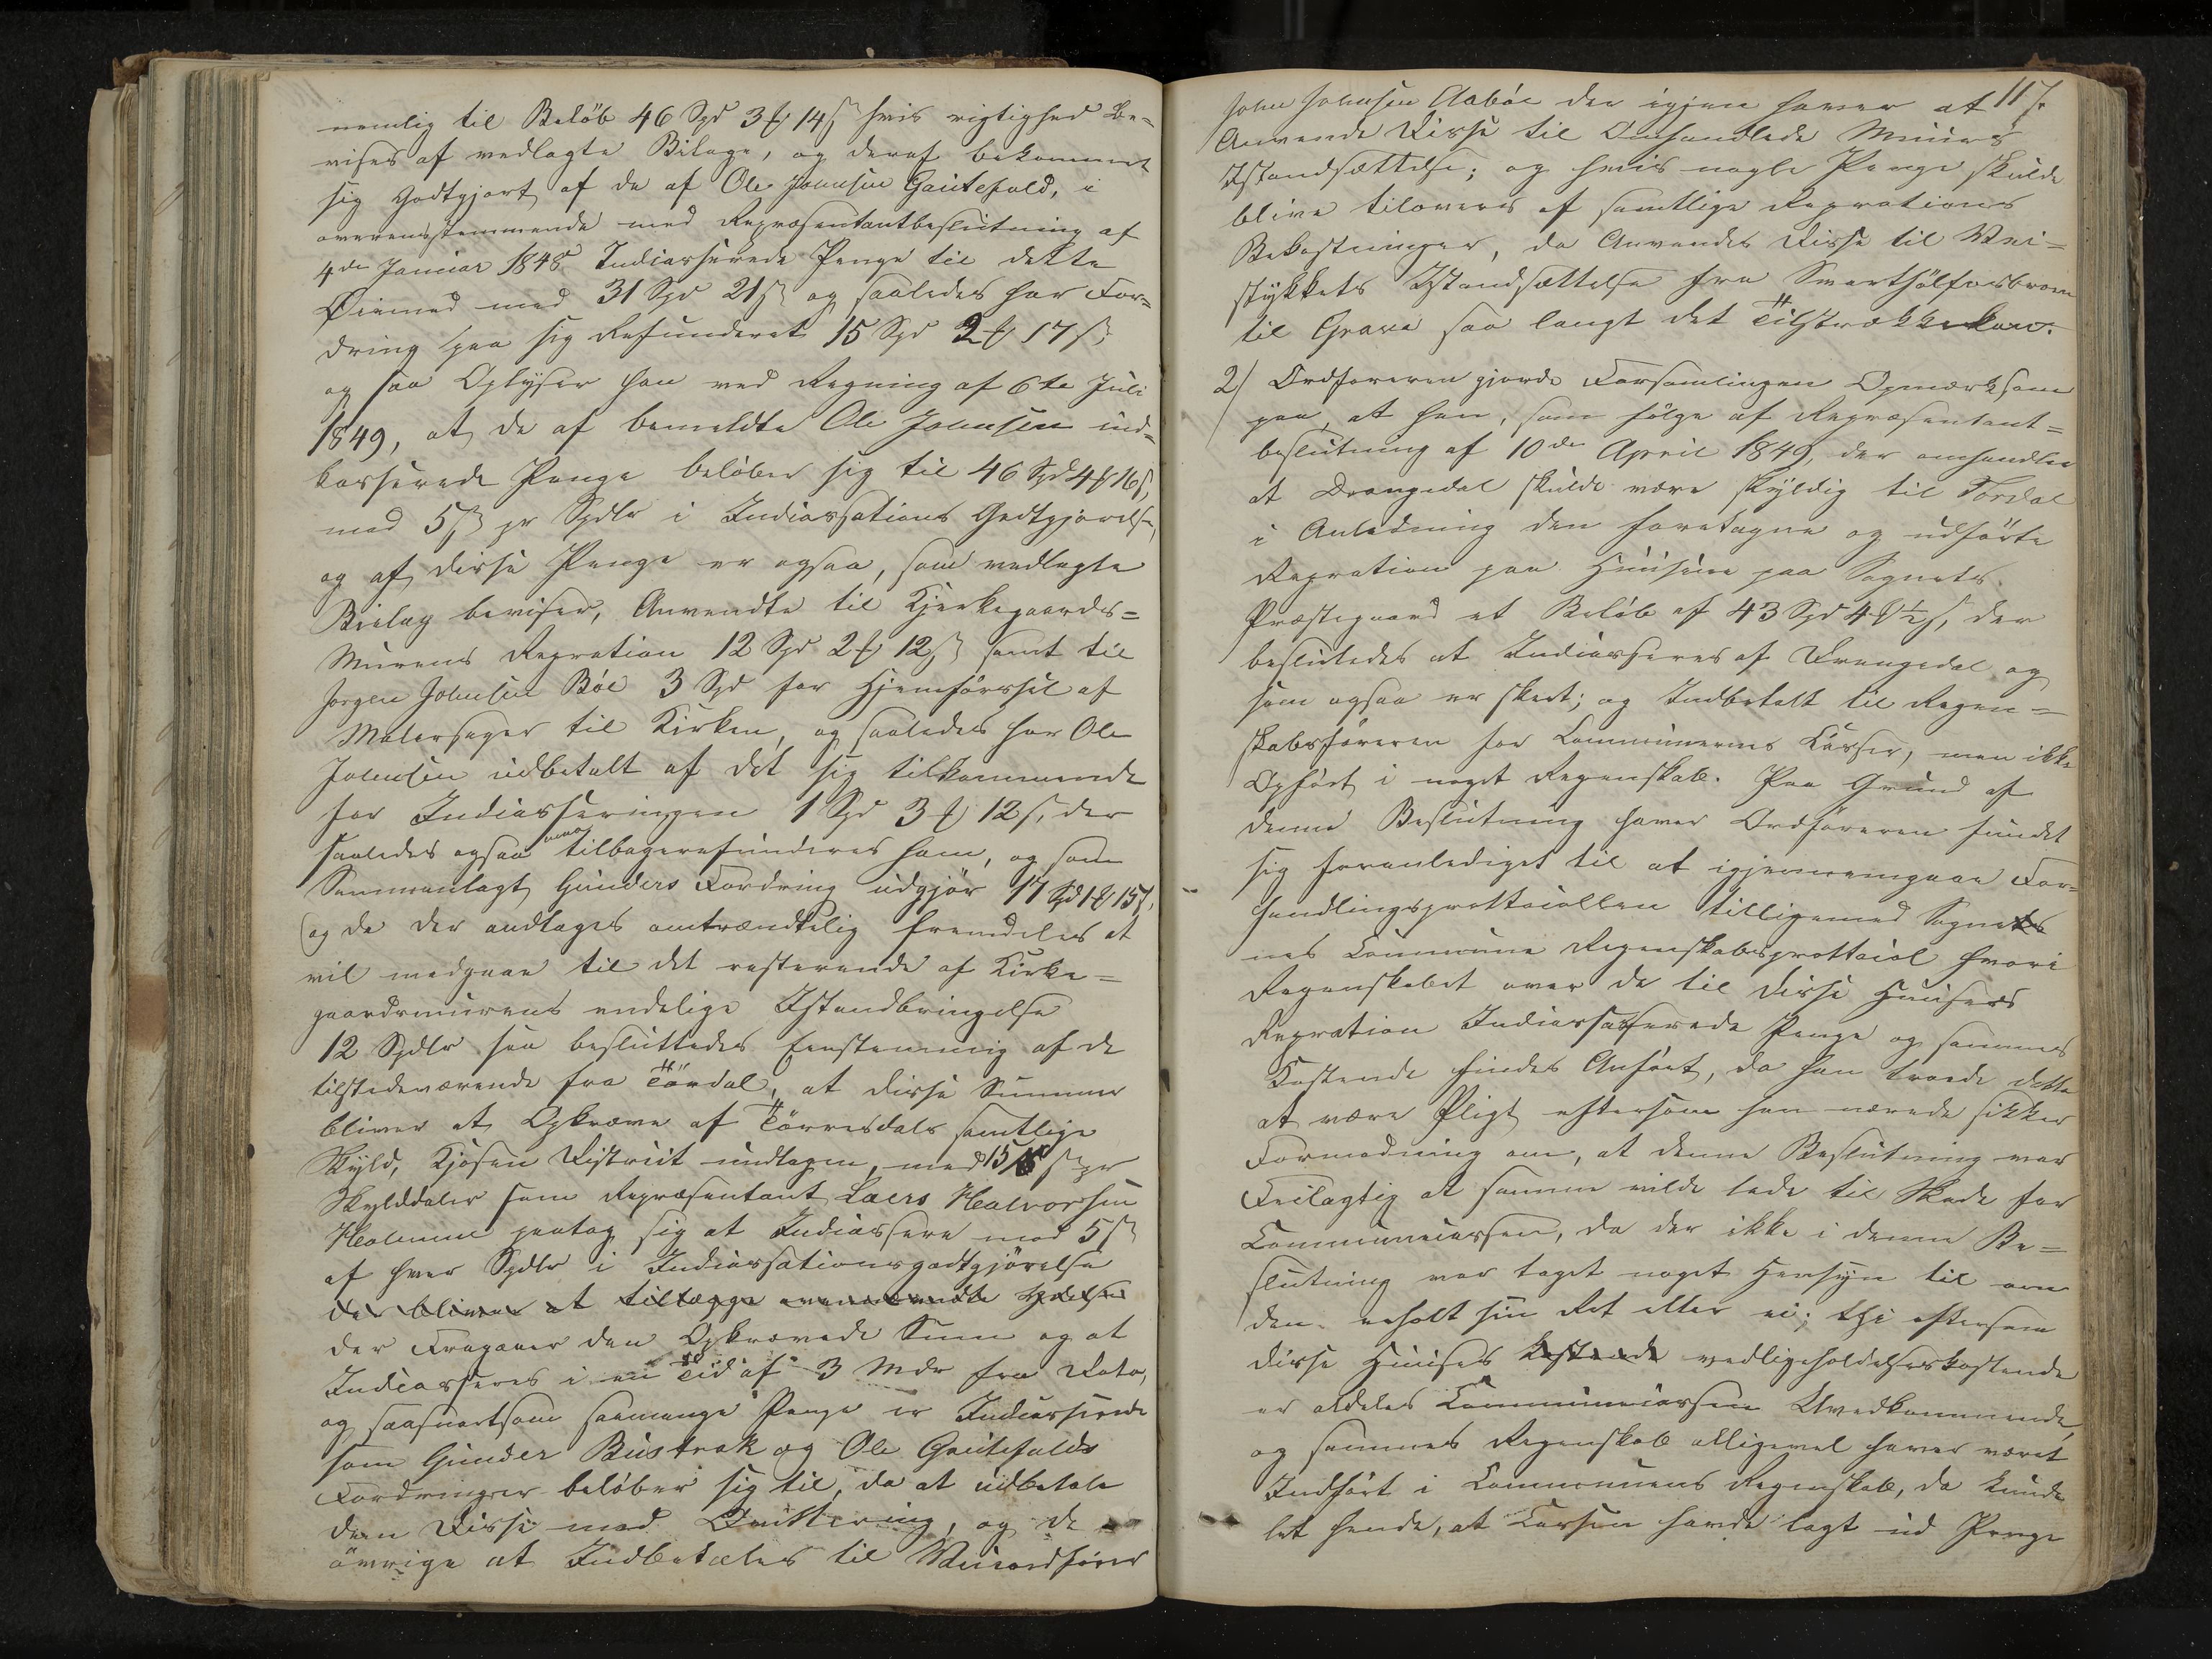 nemlig til Beløb 46 Spd 3 ₰ 14 ß hvis rigtighed be-
vises af vedlagte Bilage, og deraf bekommet
sig Godtgjort af de af Ole Johnsen Gautefald, i
overensstemmende med Repræsentantbeslutning af
4de Januar 1848 Indcasserede Penge til dette
Øiemed med 31 Spd 21 ß og saaledes har For-
dring paa sig Refunderet 15 Spd 2 ₰ 17 ß
og saa Oplyser han ved Regning af 6te Juli
1849, at de af bemeldte Ole Johnsen ind-
kasserede Penge beløber sig til 46 Spd 4 ₰ 16 ß,
med 5 ß pr Spdlr i Indcassations Godtgjørelse,
og af disse Penge er ogsaa, som vedlagte
Bielag beviser, Anvendte til Kjerkegaards-
Murens Repration 12 Spd 2 ₰ 12 ß samt til
Jorgen Johnsen Bøe 3 Spd for Hjemførsel af
Malersager til Kirken, og saaledes har Ole
Johnsen udbetalt af det sig tilkommende
for Indcasseringen 1 Spd 3 ₰ 12 ß, der
saaledes ogsaa maa tilbagerefunderes ham, og som
Sammenlagt Gunders Fordring udgjør 17 Spd 1 ₰ 15 ß,
og da der andtages omtrændtelig fremdeles at
vil medgaae til det resterende af Kirke-
gaardsmurens endelige Istandbringelse
12 Spdlr saa besluttedes Eenstemmig af de
tilstedeværende fra Tørdal, at disse Summer
bliver at Opkræve af Tørresdals samtlige
Skyld, Kjøsen District undtagen, med 15 ß pr
Skylddaler som Repræsentant Laers Halvorsen
Holmene paatog sig at Indcassere mod 5 ß
af hver Spdlr i Indcassationsgodtgjørelse
der bliver at tillægge
der Fragaaer den Opkrævede Sum og at
Indcasseres i en Tid af 3 Mdr fra Dato,
og saasnartsom saamange Penge er Indcasserede
som Gunder Bustrak og Ole Gautefalds
Fordringer beløber sig til, da at udbetale
dem Disse mod Quittering, og de
øvrige at Indbetales til Viceordfører
117.
John Johnsen Aabøe der igjen haver at
Anvende Disse til Omhandlede Muurs
Istandsættelse; og hvis nogle Penge skulde
blive tilovers af samtlige Reprations
Bekostninger, da Anvendes Disse til Vei-
stykkets Istandsættelse fra
til Grave saa langt det Tilstrække kan.
2) Ordføreren gjorde Forsamlingen Opmærksom
paa, at han, som følge af Repræsentant-
beslutning af 10de April 1849, der omhandler
at Drangedal skulde være skyldig til Tørdal
i Anledning den foretagne og udførte
Repration paa Huusene paa Sognets
Præstegaard et Beløb af 43 Spd 4 ₰ ½ ß, der
besluttedes at Indcasseres af Drangedal og
som ogsaa er skeet; og Indbetalt til Regen-
skabsføreren for Communernes Casser, men ikke
Opført i noget Regenskab. Paa Grund af
denne Beslutning haver Ordføreren fundet
sig foranlediget til at igjennemgaae For-
handlingsprottocollen tilligemed Sogne-
nes Commune Regenskabsprottocol hvori
Regenskabet over de til disse Huuses
Repration Indcasserede Penge og sammes
Kostende findes Anført, da han troede dette
at være Pligt eftersom han nærede sikker
Formodning om, at denne Beslutning var
Feilagtig at samme vilde lede til Skade for
Communecassen, da der ikke i denne Be-
slutning var taget noget Hensyn til om
den erholt sin Ret eller ei; thi eftersom
disse Huuses Kostende vedligeholdelseskostende
er aldeles Communecassen Uvedkommende,
og sammes Regenskab alligevel haver været
Indført i Communens Regenskab, da kunde
let hende, at Cassen havde lagt ud Penge